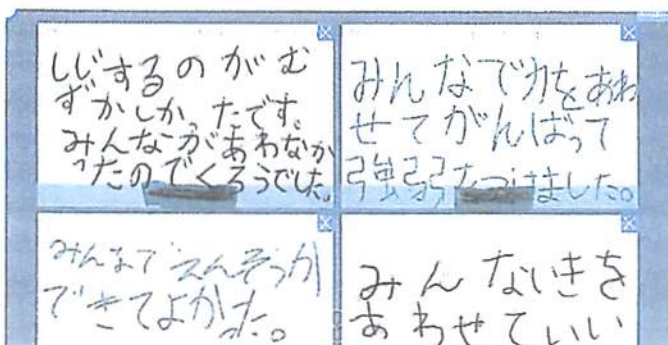 しじするのがむ
ずかしかったです。
みんながあわなか
ったのでくろうでした。
みんなで力をあわ
せてがんばって
強弱をつけました。
みんなでえんそうが
できてよかった。
みんないきを
あわせていい